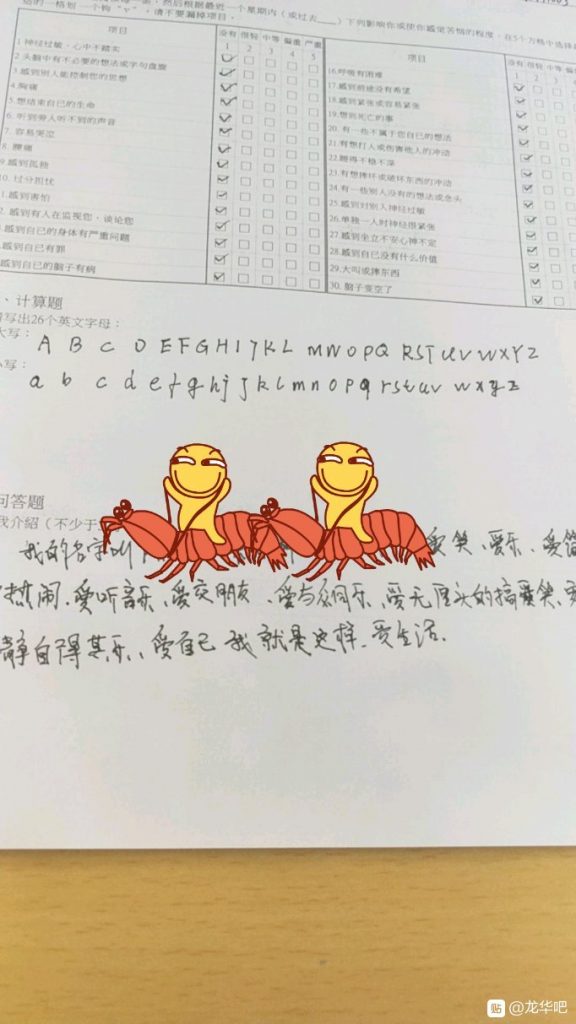 每一条，然后根据最近一个星期内（或过去____）下列影响你或使你感觉苦恼的程度，在5个方格中选择
的一格划一个钩“∨”，请不要漏掉项目．
项目 没有 很轻 中等 偏重 严重
1 2 3 4 5
1 神经过敏，心中不踏实
2.头脑中有不必要的想法或字句盘旋
3.感到别人能控制您的思想
4.胸痛
5.想结束自己的生命
6. 听到旁人听不到的声音
7. 容易哭泣
8. 腰痛
9.感到孤独
10. 过分担忧
1.感到害怕
2. 感到有人在监视您，谈论您
感到自己的身体有严重问题
感到自己有罪
感到自己的脑子有病
项目 没有 很轻 中等 偏重
1 2 3 4
16.呼吸有困难
17.感到前途没有希望
18.感到紧张或容易紧张
19.想到死亡的事
20. 有一些不属于您自己的想法
21.有想打人或伤害他人的冲动
22.睡得不稳不深
23.有想摔坏或破坏东西的冲动
24.有一些别人没有的想法或念头
25.感到对别人神经过敏
26.单独一人时神经很紧张
27.感到坐立不安心神不定
28.感到自己没有什么价值
29.大叫或摔东西
30. 脑子变空了
、计算题
请写出26个英文字母：
大写： A B C D E F G H I J K L M N O P Q R S T U V W X Y Z
小写： a b c d e f g h j J k l m n o p q r s t u v w x y z
问答题
我介绍（不少于
我的名字叫 爱笑、爱乐、爱
热闹、爱听音乐、爱交朋友、爱与众同乐、爱无厘头的搞笑、
静自得其乐、爱自己 我就是这样、爱生活．
贴 @龙华吧